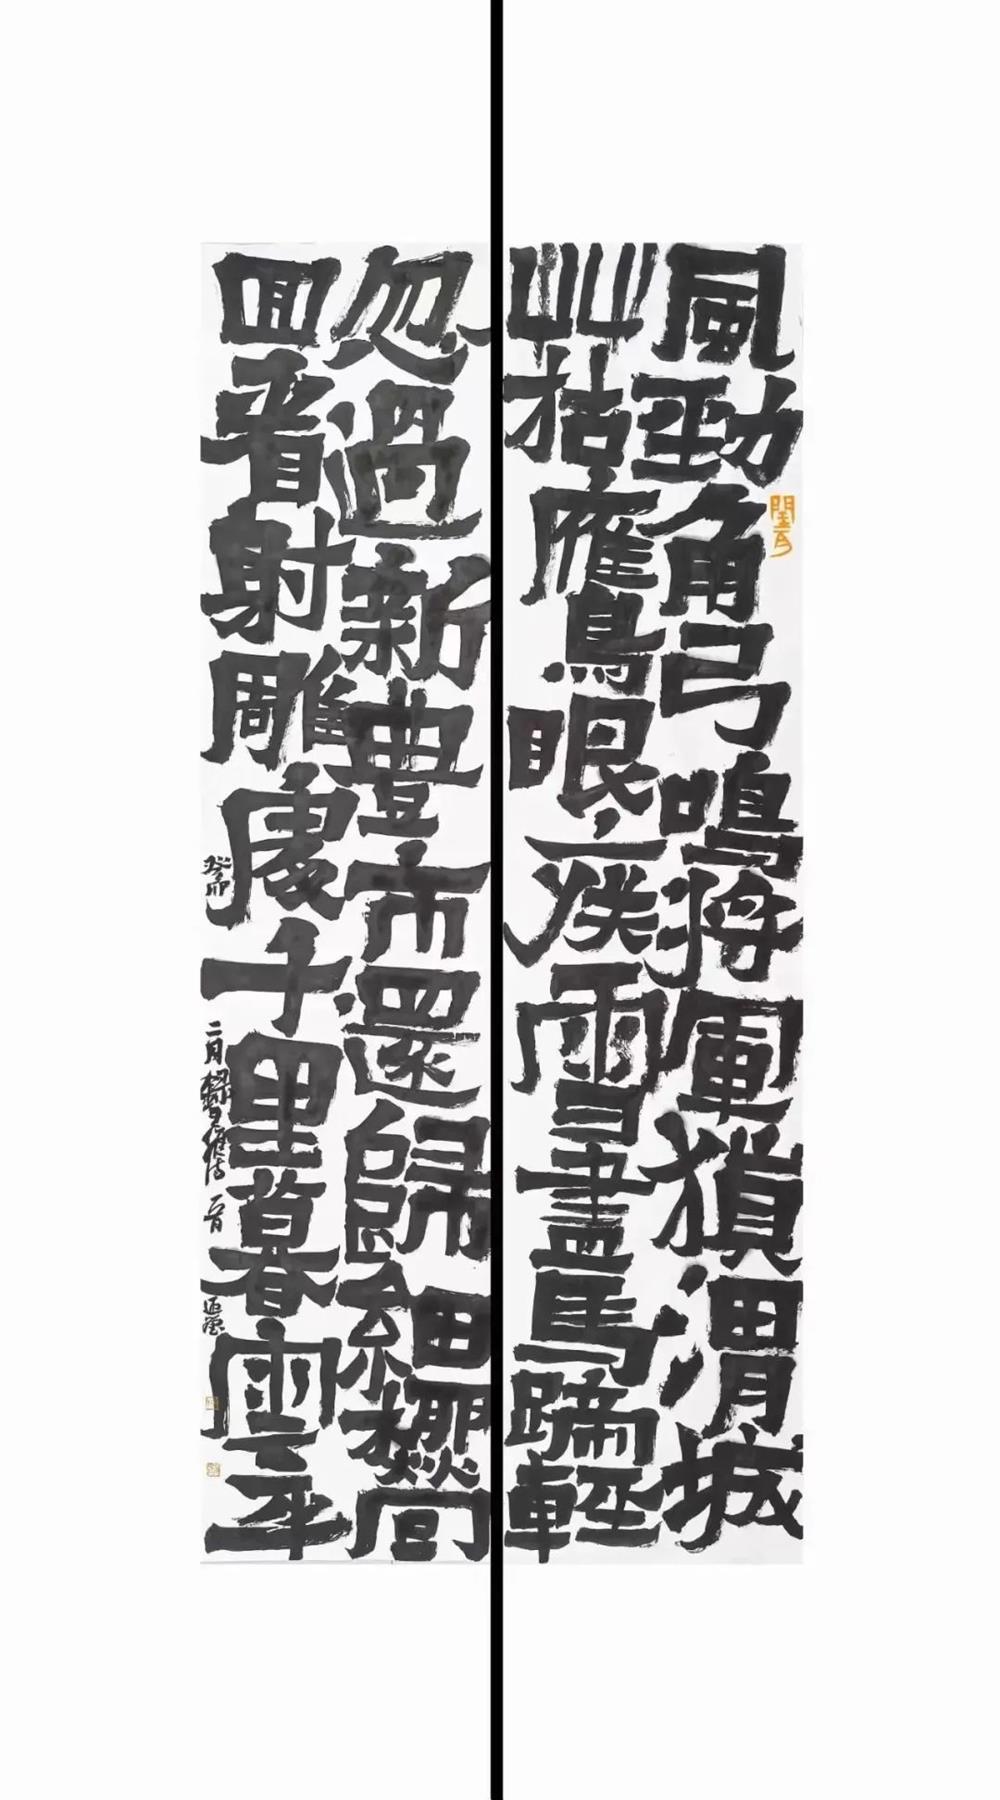 風勁角弓鳴將軍獵渭城
艸枯鷹眼疾雪盡馬蹄輕
忽過新豐市還歸細柳營
回看射雕處千里暮雲平
癸卯二月錄王維詩一首